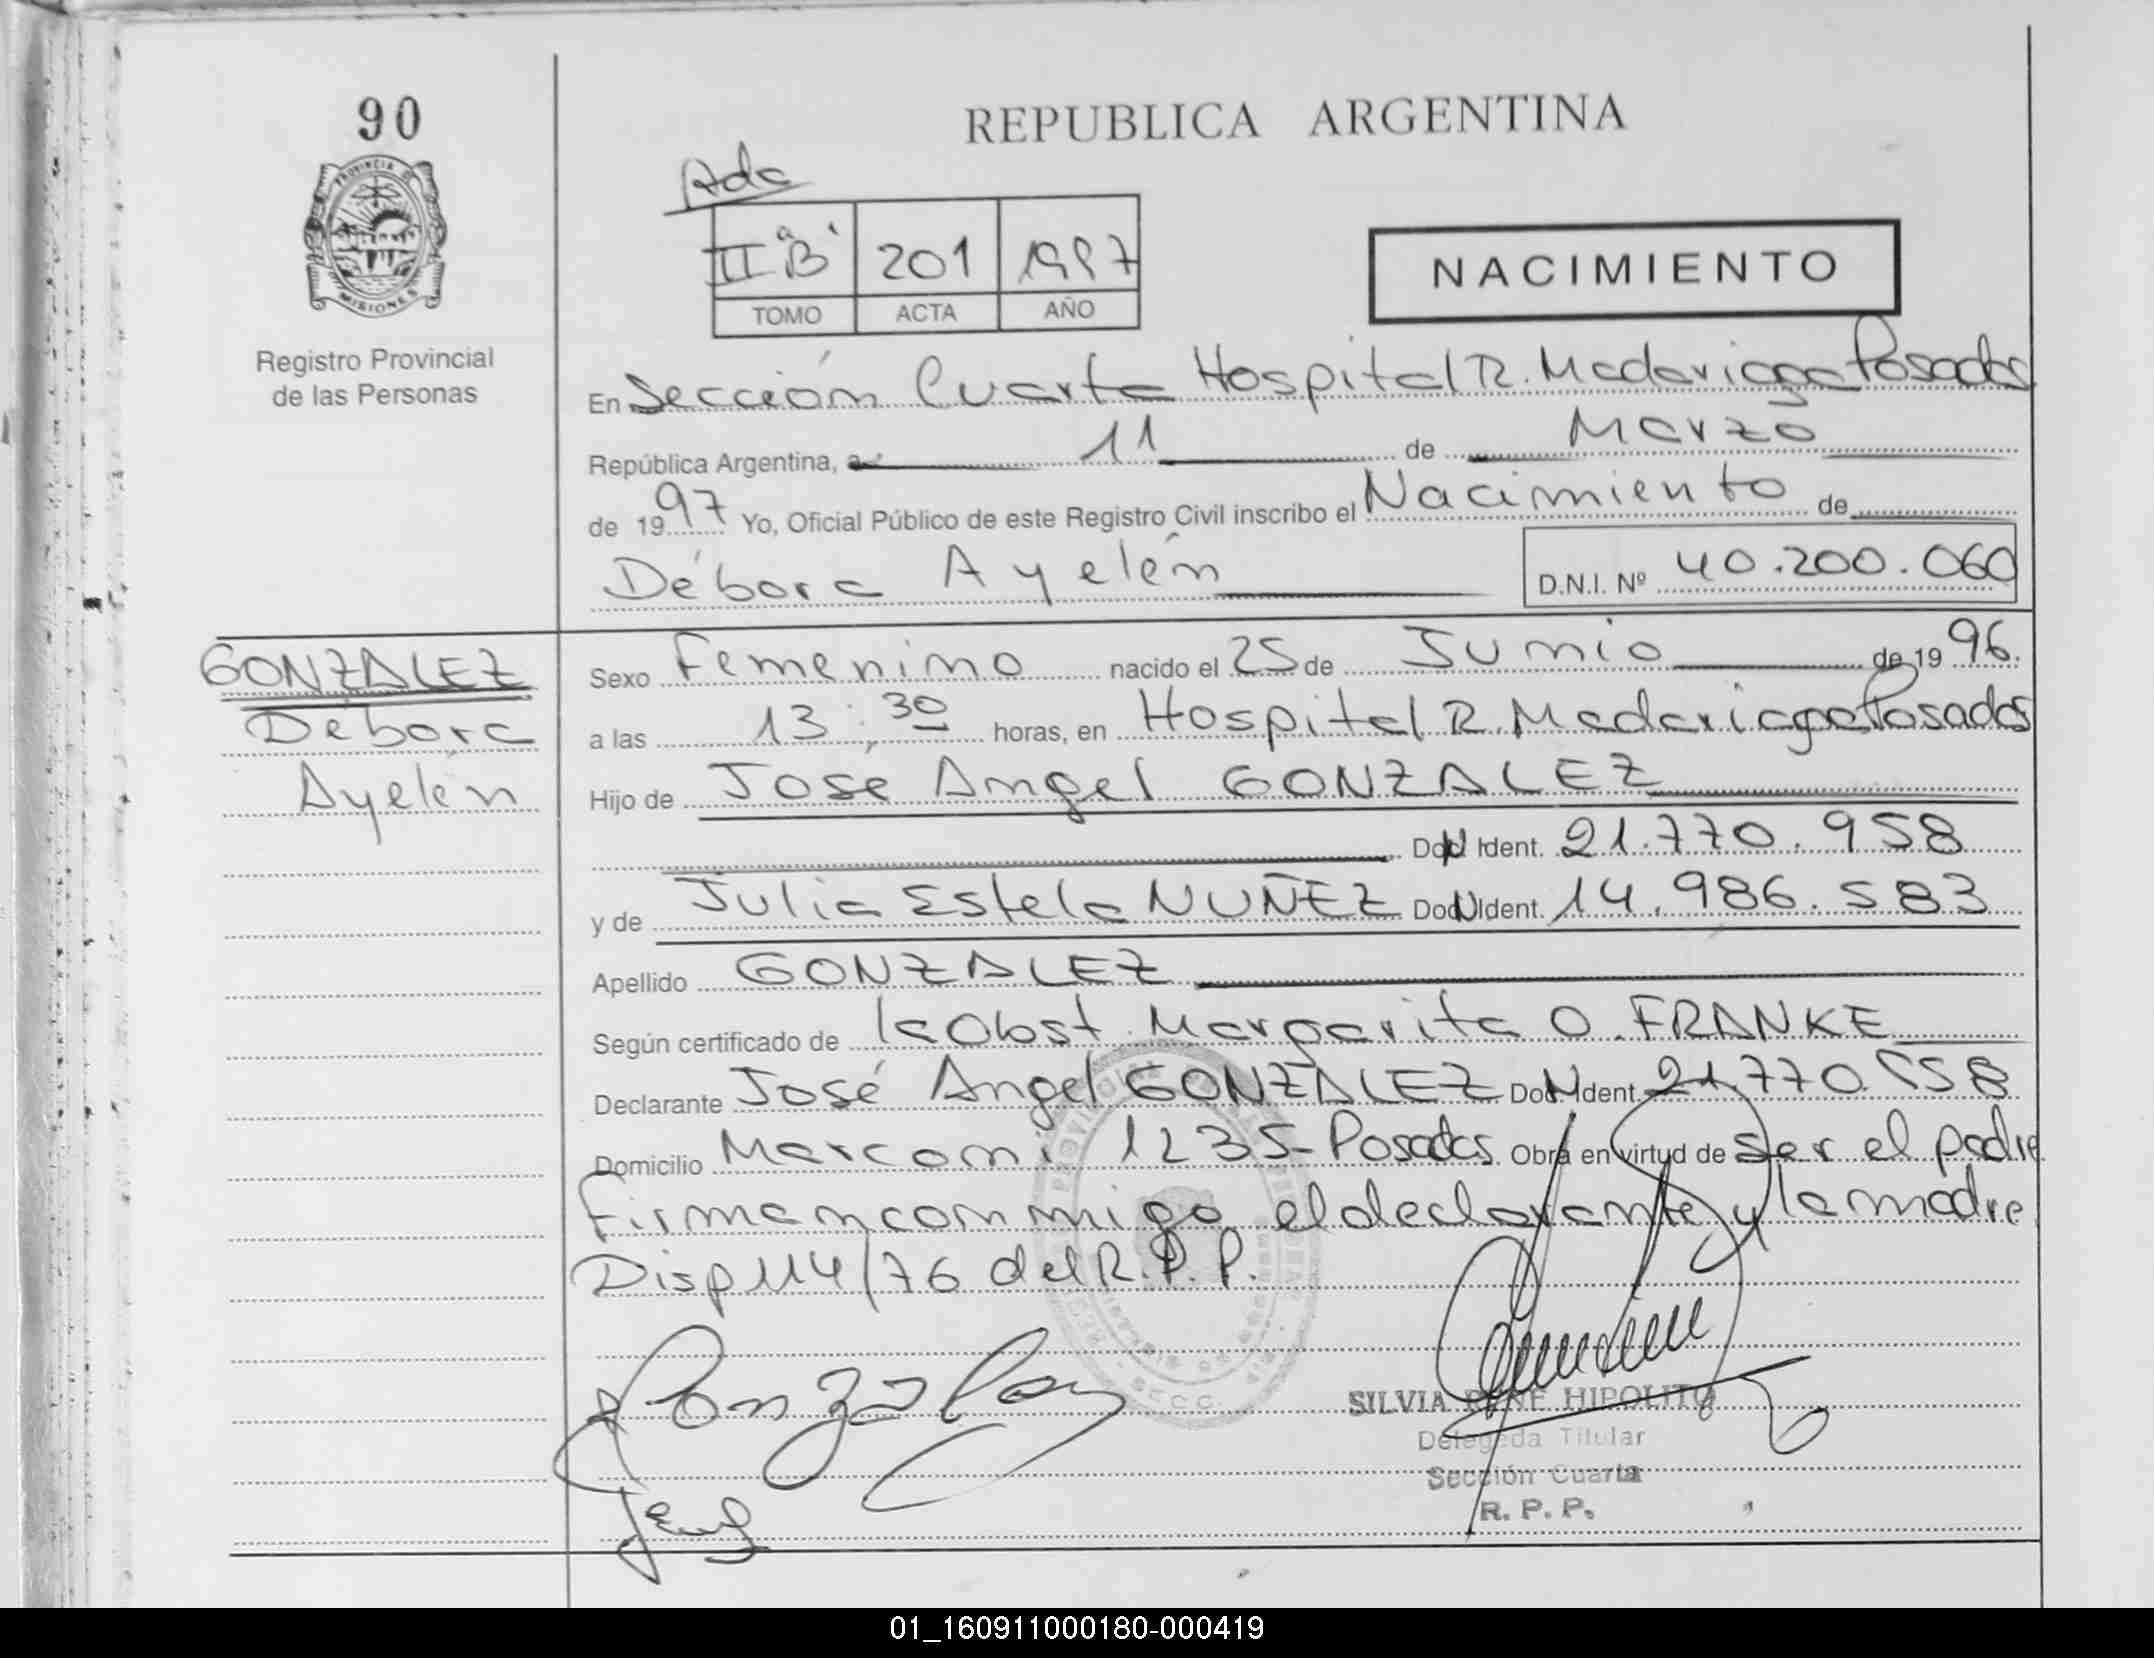 90
REPUBLICA ARGENTINA
Ada
PROVINCIA DE
MISIONES
II "B" 201 1997
TOMO ACTA AÑO
NACIMIENTO
Registro Provincial
de las Personas
En Sección Cuarta Hospital R. Madariaga Posadas
República Argentina, a 11 de Marzo
de 1997 Yo, Oficial Público de este Registro Civil inscribo el Nacimiento de
Débora Ayelén D.N.I. Nº 40.200.060
GONZALEZ
Débora
Ayelén
Sexo Femenino nacido el 25 de Junio de 1996.
a las 13:30 horas, en Hospital R. Madariaga Posadas
Hijo de José Angel GONZALEZ
DNI Ident. 21.770.958
y de Julia Estela NUÑEZ DNI Ident. 14.986.583
Apellido GONZALEZ
Según certificado de la Obst. Margarita O. FRANKE
Declarante José Angel GONZALEZ DNI Ident. 21.770.958
Domicilio Marconi 1235-Posadas Obra en virtud de ser el padre
Firman conmigo el declarante y la madre.
Disp 114/76 del R.P.P.
Gonzalez
SILVIA RENE HIPOLITO
Delegada Titular
Sección Cuarta
R. P. P.
01_160911000180-000419